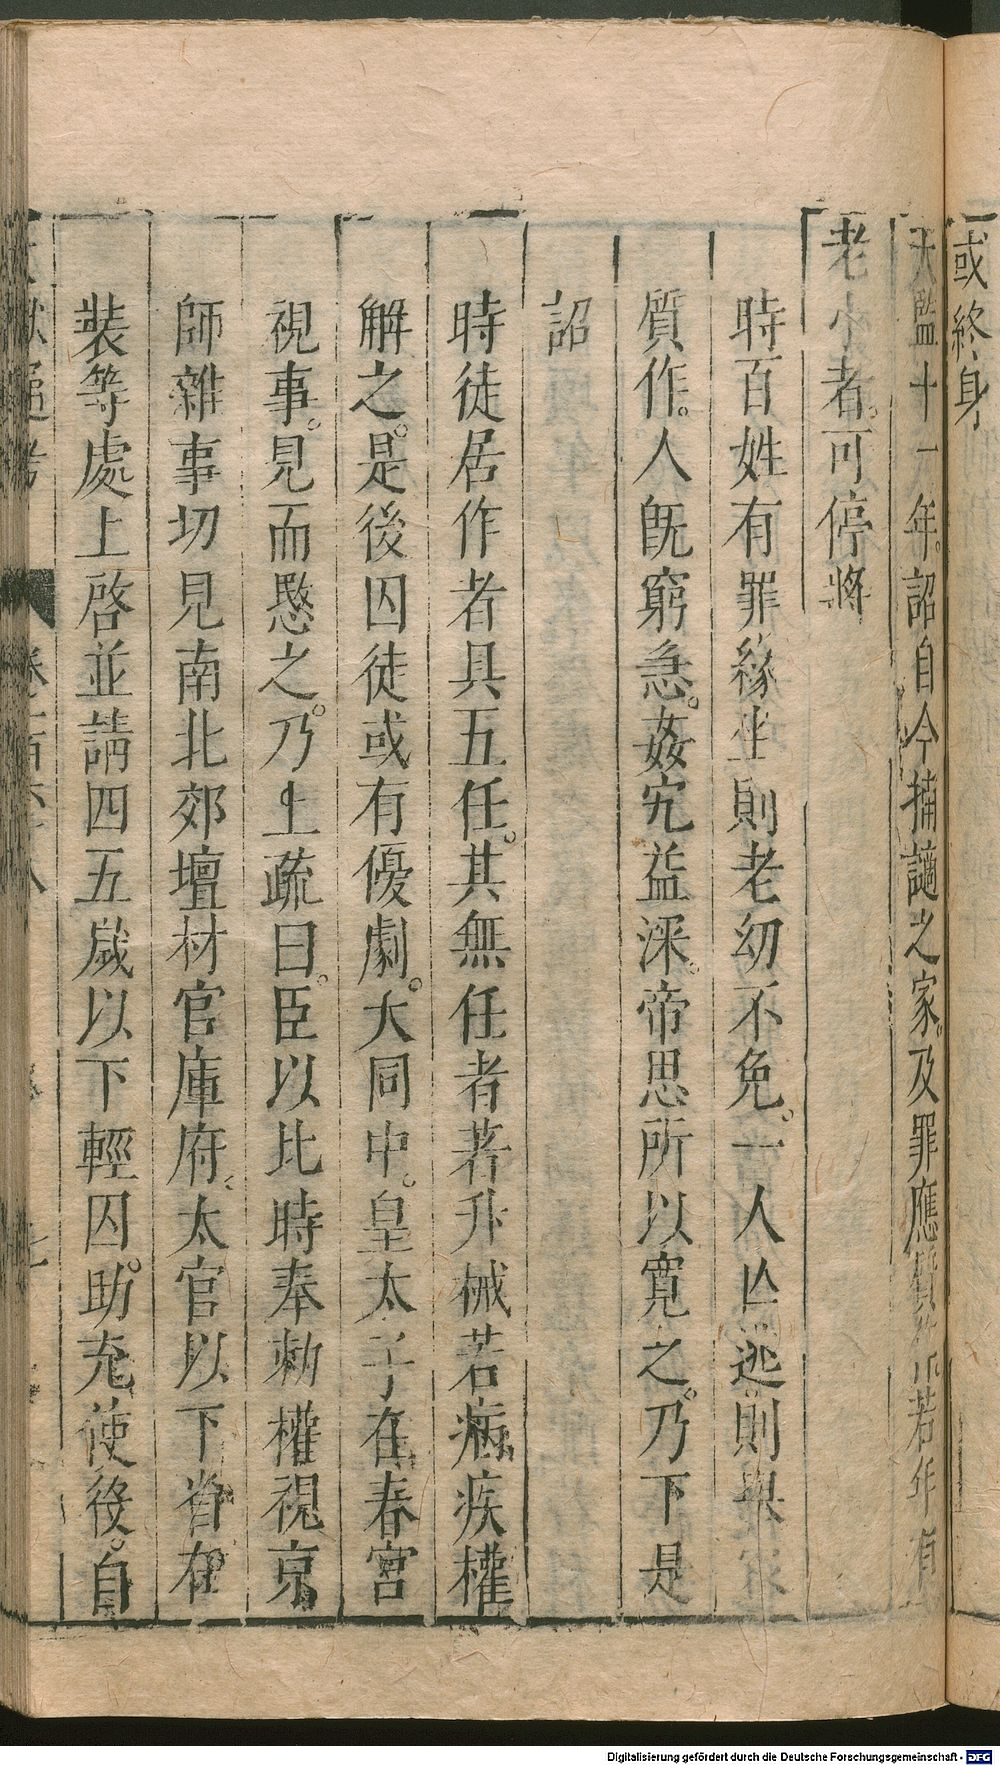 或終身
天監十一年詔自今捕讁之家及罪應質作若年有
老小者可停將
時百姓有罪緣坐則老幼不免一人亾逃則舉家
質作人旣窮急姦宄益深帝思所以寬之乃下是
詔
時徒居作者具五任其無任者著升械若病疾權
解之是後囚徒或有優劇大同中皇太子在春宮
視事見而愍之乃上疏曰臣以比時奉勑權視京
師雜事切見南北郊壇材官庫府太官以下省在
裝等處上啓並請四五歲以下輕囚助充使役自
Digitalisierung gefördert durch die Deutsche Forschungsgemeinschaft - DFG